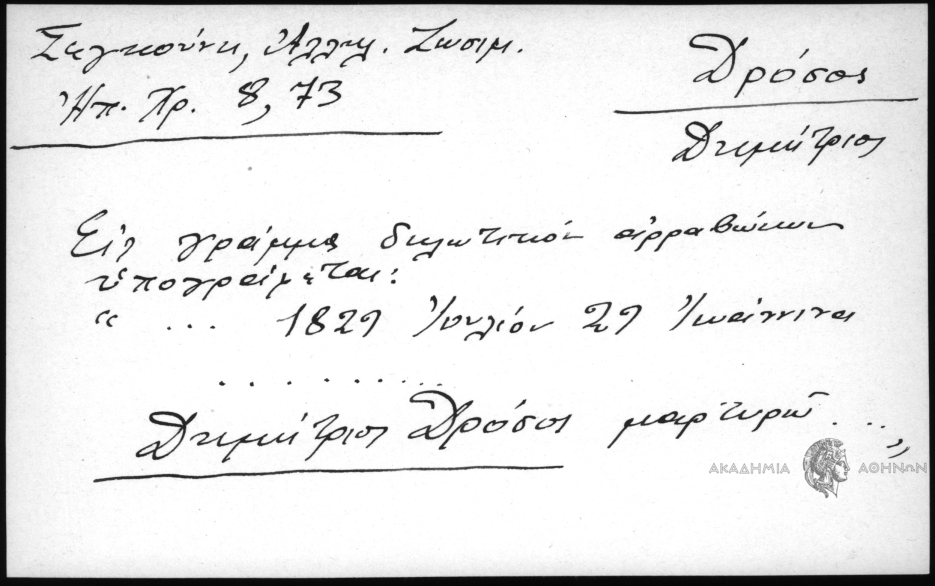 Σεγκούνη, Ἀλλη. Ζωσιμ.
Ἠπ. Χρ. 8, 73
Δρόσος
Δημήτριος
Εἰς γράμμα δηλωτικόν ἀρραβώνων
ὑπογράφεται:
“ ... 1829 Ἰουλίου 29 Ἰωάννινα
. . . . . . . . . .
Δημήτριος Δρόσος μαρτυρῶ ...”
ΑΚΑΔΗΜΙΑ ΑΘΗΝΩΝ